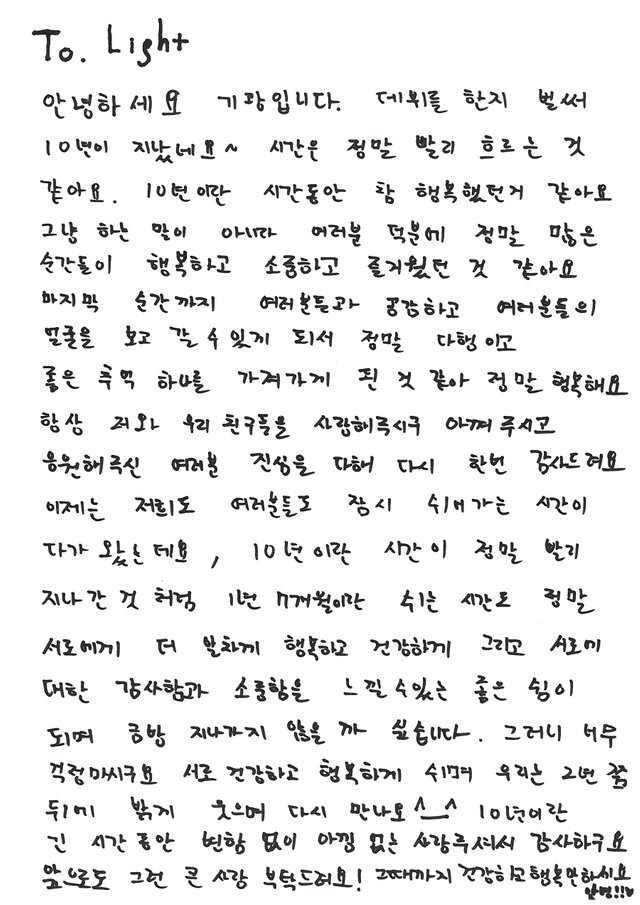 To. Light
안녕하세요 기광입니다. 데뷔를 한지 벌써
10년이 지났네요~ 시간은 정말 빨리 흐르는 것
같아요. 10년이란 시간동안 참 행복했던거 같아요
그냥 하는 말이 아니라 여러분 덕분에 정말 많은
순간들이 행복하고 소중하고 즐거웠던 것 같아요
마지막 순간까지 여러분들과 공감하고 여러분들의
얼굴을 보고 갈 수 있게 되서 정말 다행이고
좋은 추억 하나를 가져가게 된 것 같아 정말 행복해요
항상 저와 우리 친구들을 사랑해주시구 아껴주시고
응원해주신 여러분 진심을 다해 다시 한번 감사드려요
이제는 저희도 여러분들도 잠시 쉬어가는 시간이
다가 왔는데요, 10년이란 시간이 정말 빨리
지나간 것 처럼 1년 7개월이란 쉬는 시간도 정말
서로에게 더 알차게 행복하고 건강하게 그리고 서로에
대한 감사함과 소중함을 느낄수있는 좋은 쉼이
되며 금방 지나가지 않을 까 싶습니다. 그러니 너무
걱정마시구요 서로 건강하고 행복하게 쉬며 우리는 2년 쯤
뒤에 밝게 웃으며 다시 만나요^__^ 10년이란
긴 시간동안 변함 없이 아낌 없는 사랑주셔서 감사하구요
앞으로도 그런 큰 사랑 부탁드려요! 그때까지 건강하고행복만하시요
안녕!!♥